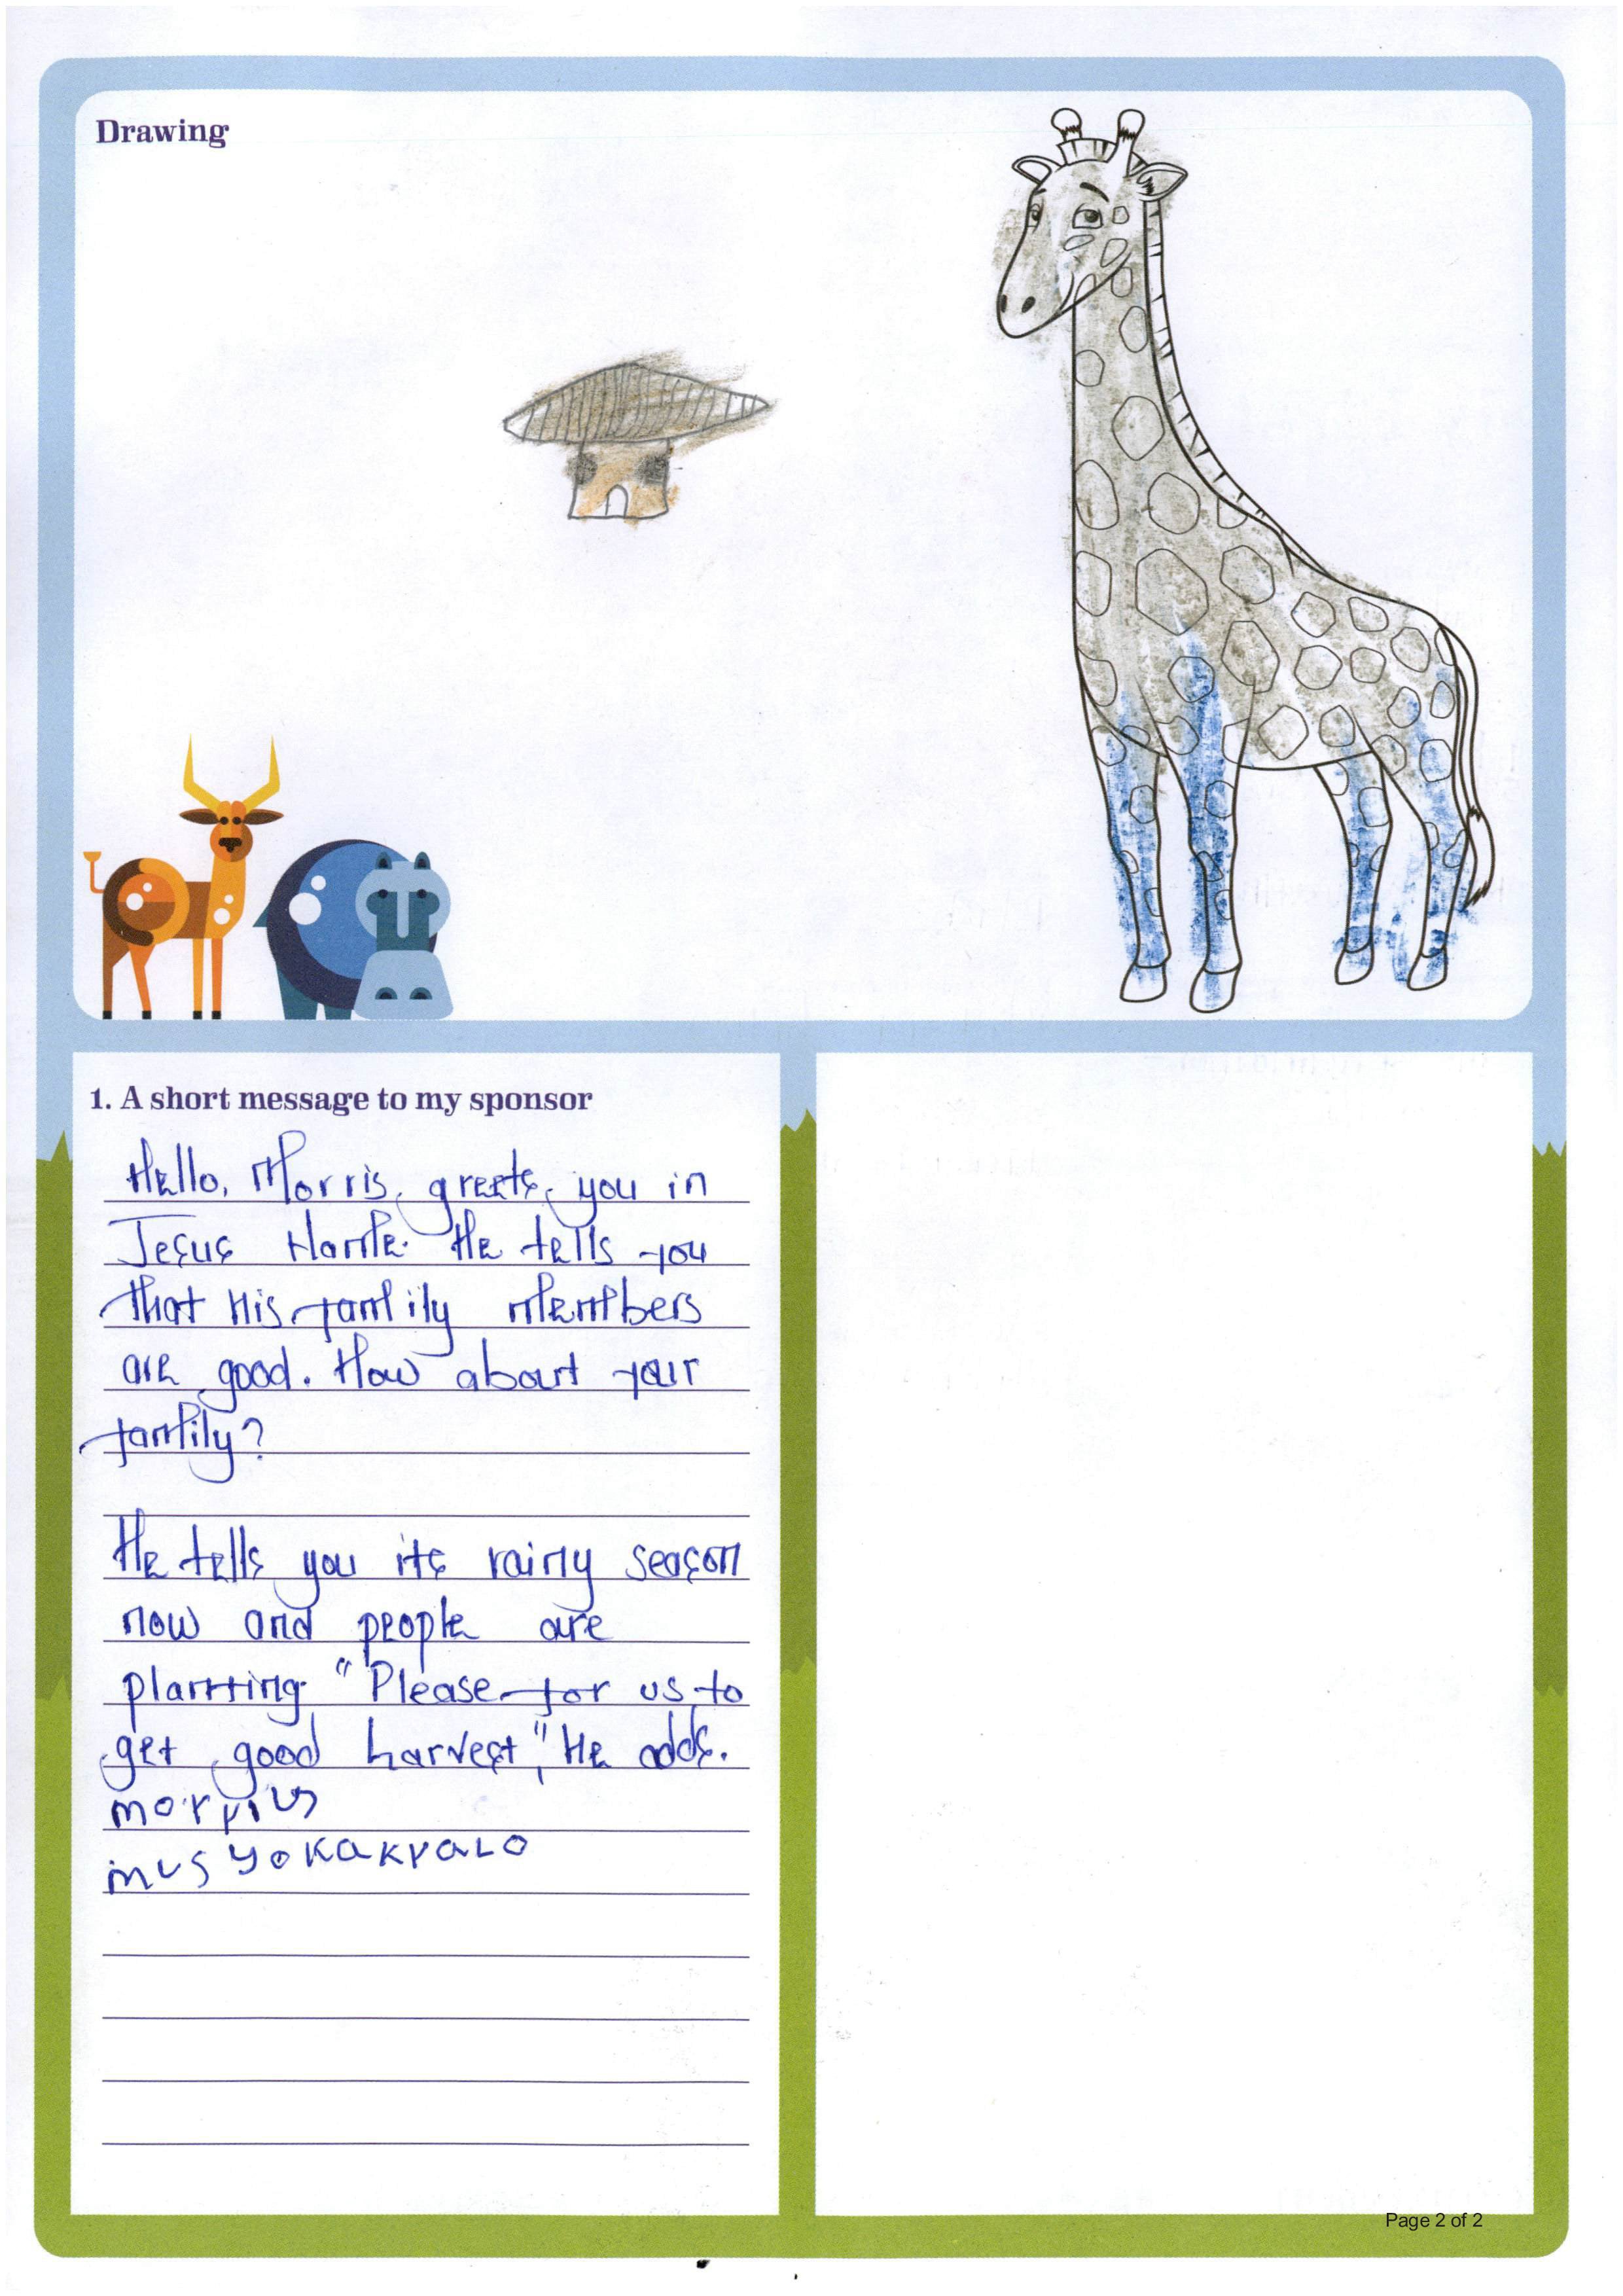 Drawing
1. A short message to my sponsor
Hello, Morris greets you in
Jesus Name. He tells you
that His family members
are good. How about your
family?
He tells you its rainy season
now and people are
planting. "Please for us to
get good harvest", He adds.
morris
musyoka kvalo
Page 2 of 2